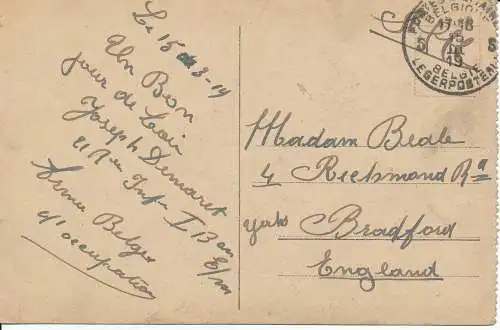 Le 15 de 3-19
Un Bon
jour de Loin
Joseph Demaret
21 Re Inf I Bon
E/m
Armée Belge
d'occupation
S.M.
BELGIQUE
17-18
15
III
19
5 5
BELGIE
LEGERPOSTERIJ
Madam Beale
4 Richmond Rd
York Bradford
England